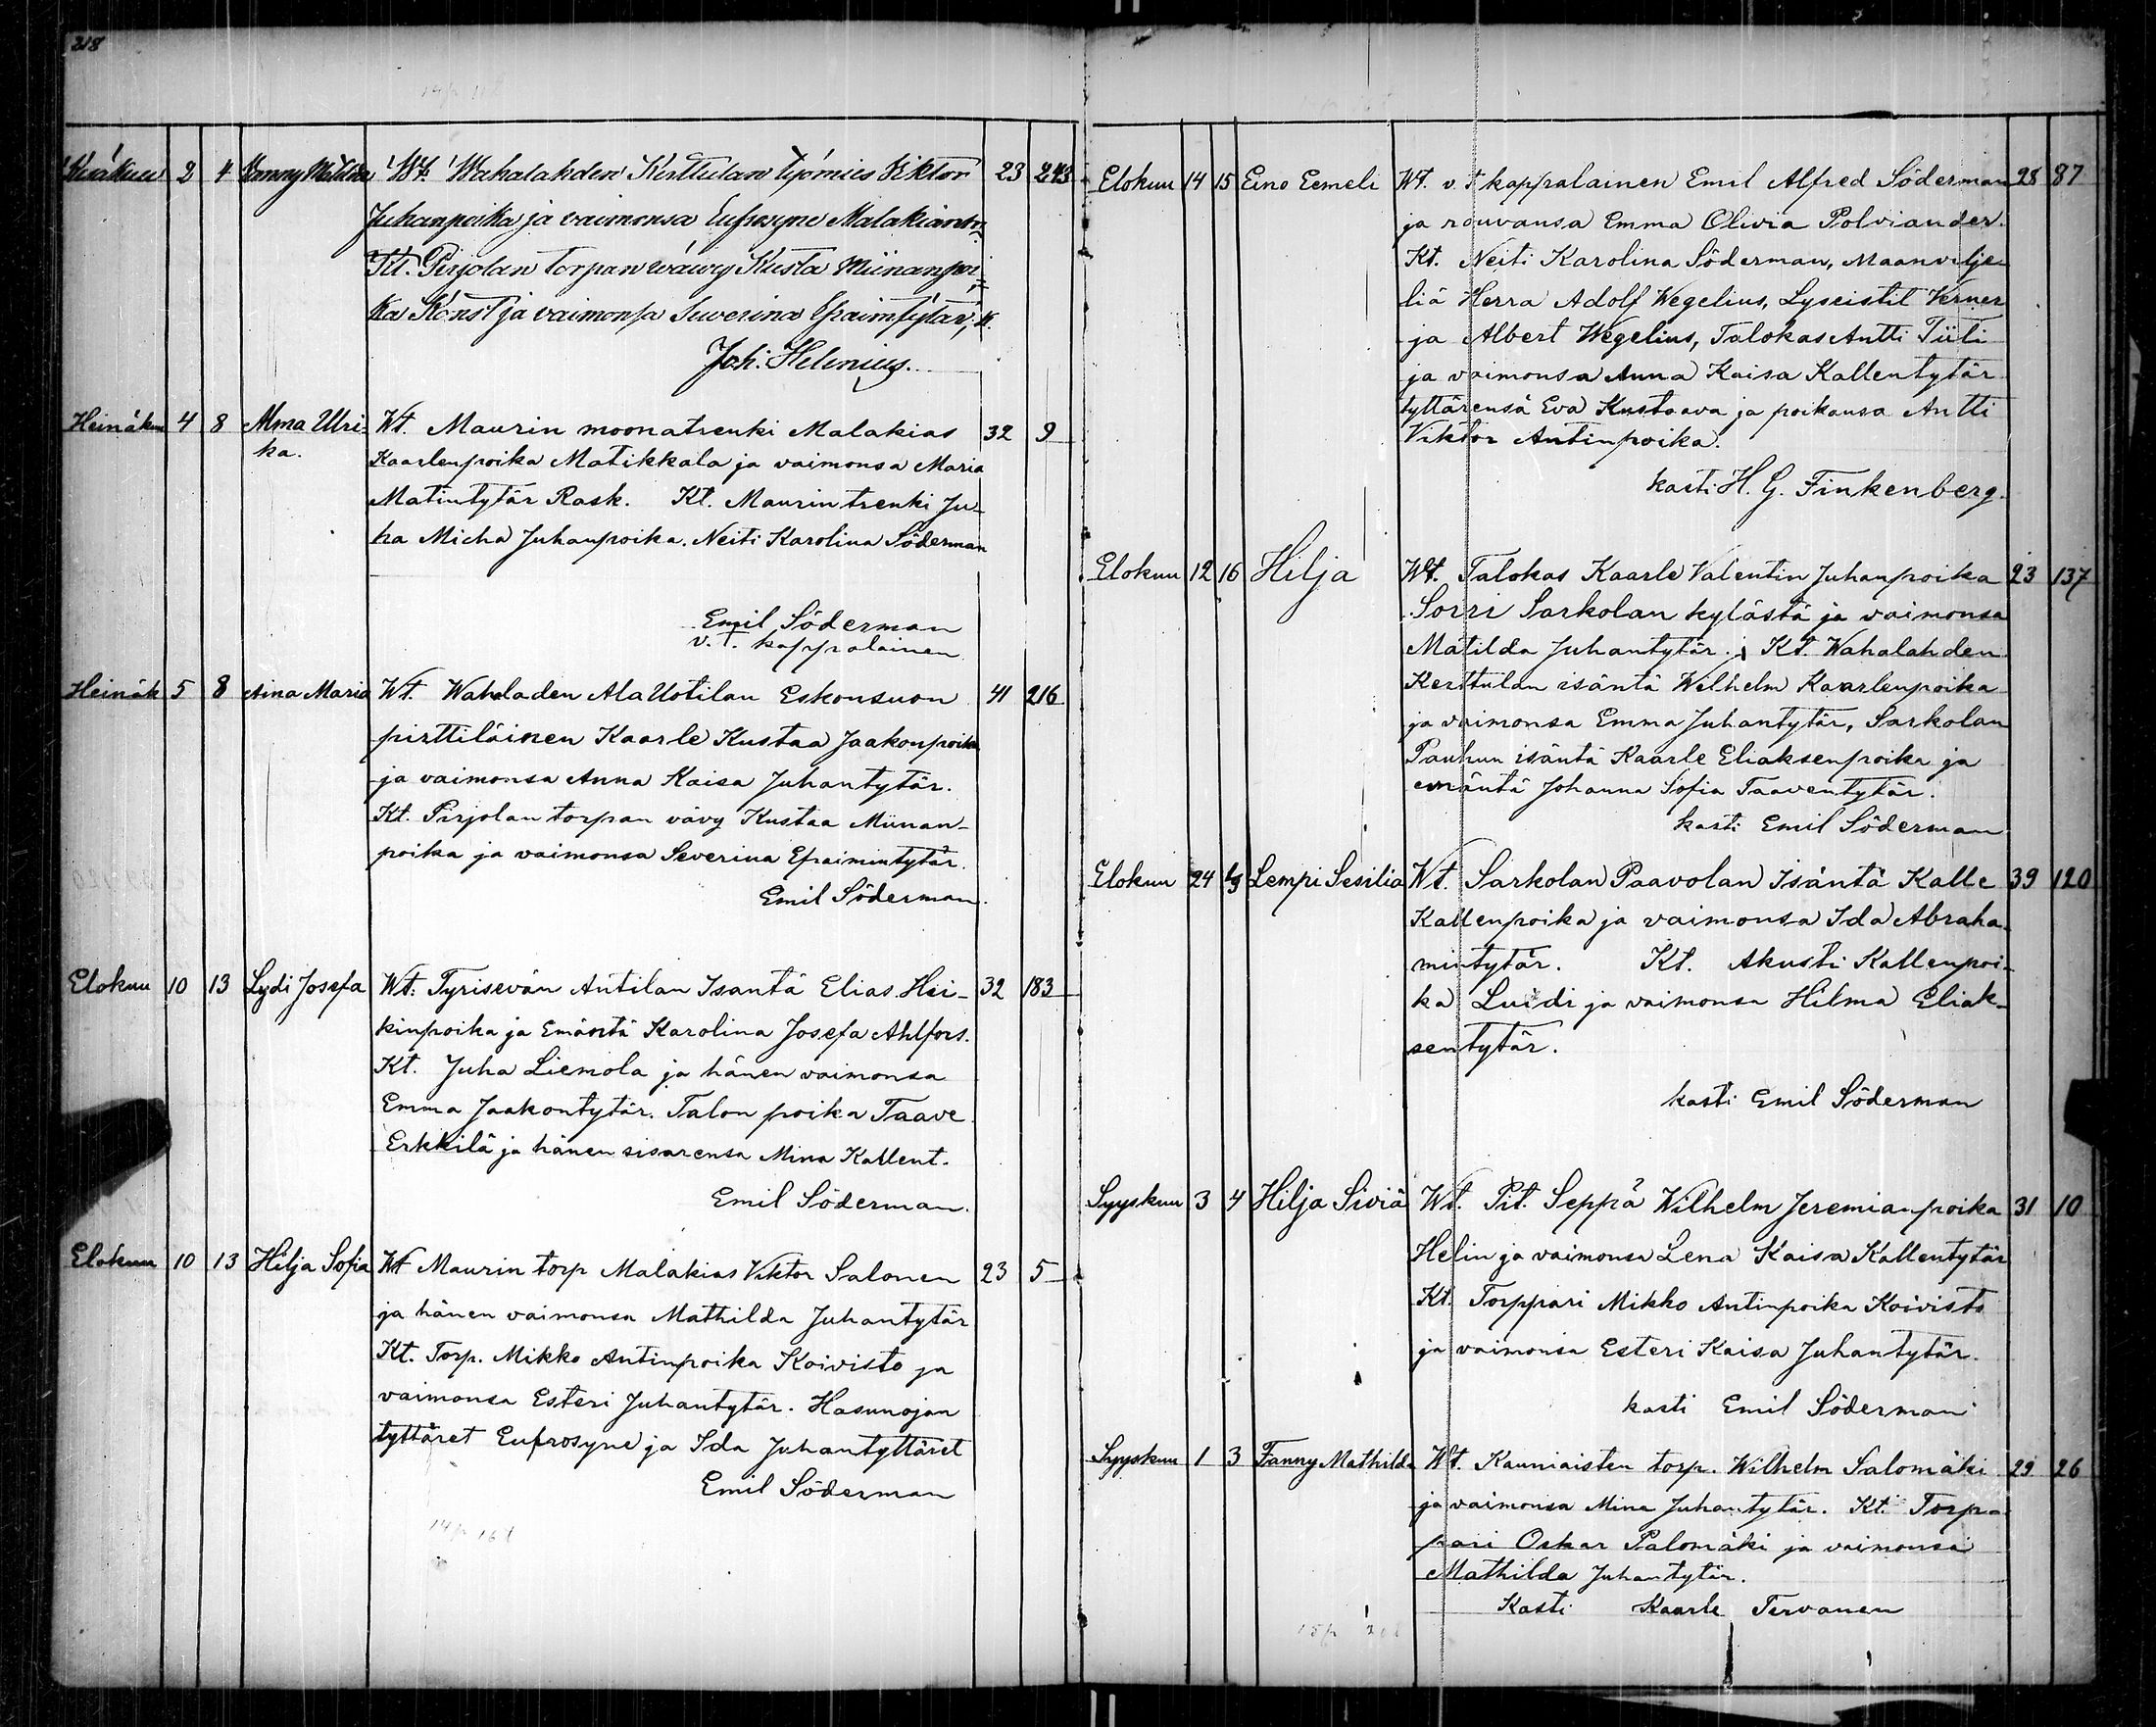 218
Kesäkuu 2 4 Fanny Matilda Wt. Wahalahden Kerttulan työmies Viktor 23 243
Juhanpoika ja vaimonsa Eufrosyne Malakiant.
Kt. Pirjolan torpan wäwy Kusta Miinanpoi-
ka Könst ja vaimonsa Sewerina Efraimtytär,
Joh. Helenius.
Heinäkuu 4 8 Alma Ulri- Wt. Maurin moonatrenki Malakias 32 9
ka. Kaarlenpoika Matikkala ja vaimonsa Maria
Matintytär Rask. Kt. Maurin trenki Ju-
ha Micha Juhanpoika. Neiti Karolina Söderman
Emil Söderman
v.t. kappalainen
Heinäk 5 8 Aina Maria Wt. Wahaladen Ala Uotilan Eskonsuon 41 216
pirttiläinen Kaarle Kustaa Jaakonpoika
ja vaimonsa Anna Kaisa Juhantytär.
Kt. Pirjolan torpan vävy Kustaa Miinan-
poika ja vaimonsa Severina Efraimintytär.
Emil Söderman.
Elokuu 10 13 Lydi Josefa Wt: Tyrisevän Antilan Isantä Elias Hei- 32 183
kinpoika ja Emäntä Karolina Josefa Ahlfors.
Kt. Juha Liemola ja hänen vaimonsa
Emma Jaakontytär. Talon poika Taave
Erkkilä ja hänen sisarensa Mina Kallent.
Emil Söderman.
Elokuu 10 13 Hilja Sofia Wt Maurin torp Malakias Viktor Salonen 23 5
ja hänen vaimonsa Mathilda Juhantytär
Kt. Torp. Mikko Antinpoika Koivisto ja
vaimonsa Esteri Juhantytär. Hasunojan
tyttäret Eufrosyne ja Ida Juhantyttäret
Emil Söderman
14p 16t
Elokuu 14 15 Eino Eemeli Wt. v.t kappalainen Emil Alfred Söderman 28 87
ja rouvansa Emma Olivia Polviander.
Kt. Neiti Karolina Söderman, Maanvilje-
liä Herra Adolf Wegelius, Lyseistit Verner
ja Albert Wegelius, Talokas Antti Tiiti
ja vaimonsa Anna Kaisa Kallentytär
tyttärensä Eva Kustaava ja poikansa Antti
Viktor Antinpoika.
kasti H. G. Finkenberg.
Elokuu 12 16 Hilja Wt. Talokas Kaarle Valentin Juhanpoika 23 137
Sorri Sarkolan kylästä ja vaimonsa
Matilda Juhantytär. Kt. Wahalahden
Kerttulan isäntä Wilhelm Kaarlenpoika
ja vaimonsa Emma Juhantytär, Sarkolan
Pauhun isäntä Kaarle Eliaksenpoika ja
emäntä Johanna Sofia Taaventytär.
kasti Emil Söderman
Elokuu 24 Lempi Sesilia Wt. Sarkolan Paavolan Isäntä Kalle 39 120
Kallenpoika ja vaimonsa Ida Abraha-
mintytär. Kt. Akusti Kallenpoi-
ka Luidi ja vaimonsa Hilma Eliak-
sentytär.
kasti Emil Söderman
Syyskuu 3 4 Hilja Siviä Wt. Pit. Seppä Wilhelm Jeremianpoika 31 10
Helin ja vaimonsa Lena Kaisa Kallentytär
Kt. Torppari Mikko Antinpoika Koivisto
ja vaimonsa Esteri Kaisa Juhantytär.
kasti Emil Söderman
Syyskuu 1 3 Fanny Mathilda Wt. Kauniaisten torp. Wilhelm Salomäki 29 26
ja vaimonsa Mina Juhantytär. Kt. Torp-
pari Oskar Palomäki ja vaimonsa
Mathilda Juhantytär.
Kasti Kaarle Tervanen